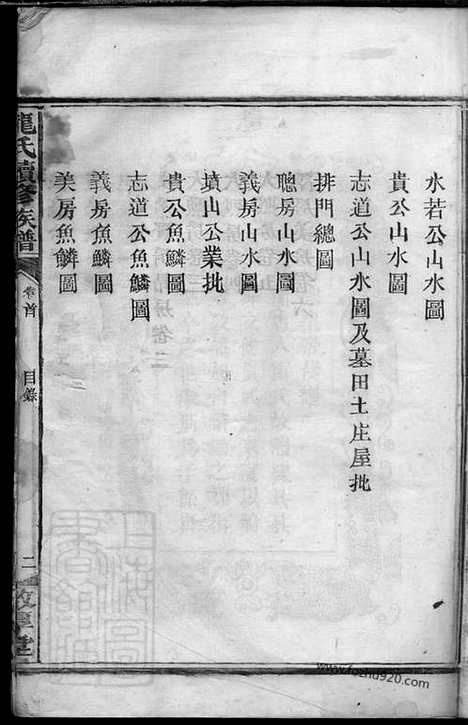 水若公山水圖
貴公山水圖
志道公山水圖及墓田土庄屋批
排門總圖
聰房山水圖
義房山水圖
墳山公業批
貴公魚鱗圖
志道公魚鱗圖
義房魚鱗圖
美房魚鱗圖
氏續修族譜
卷首
目錄
二
堂
www.fozhu920.com